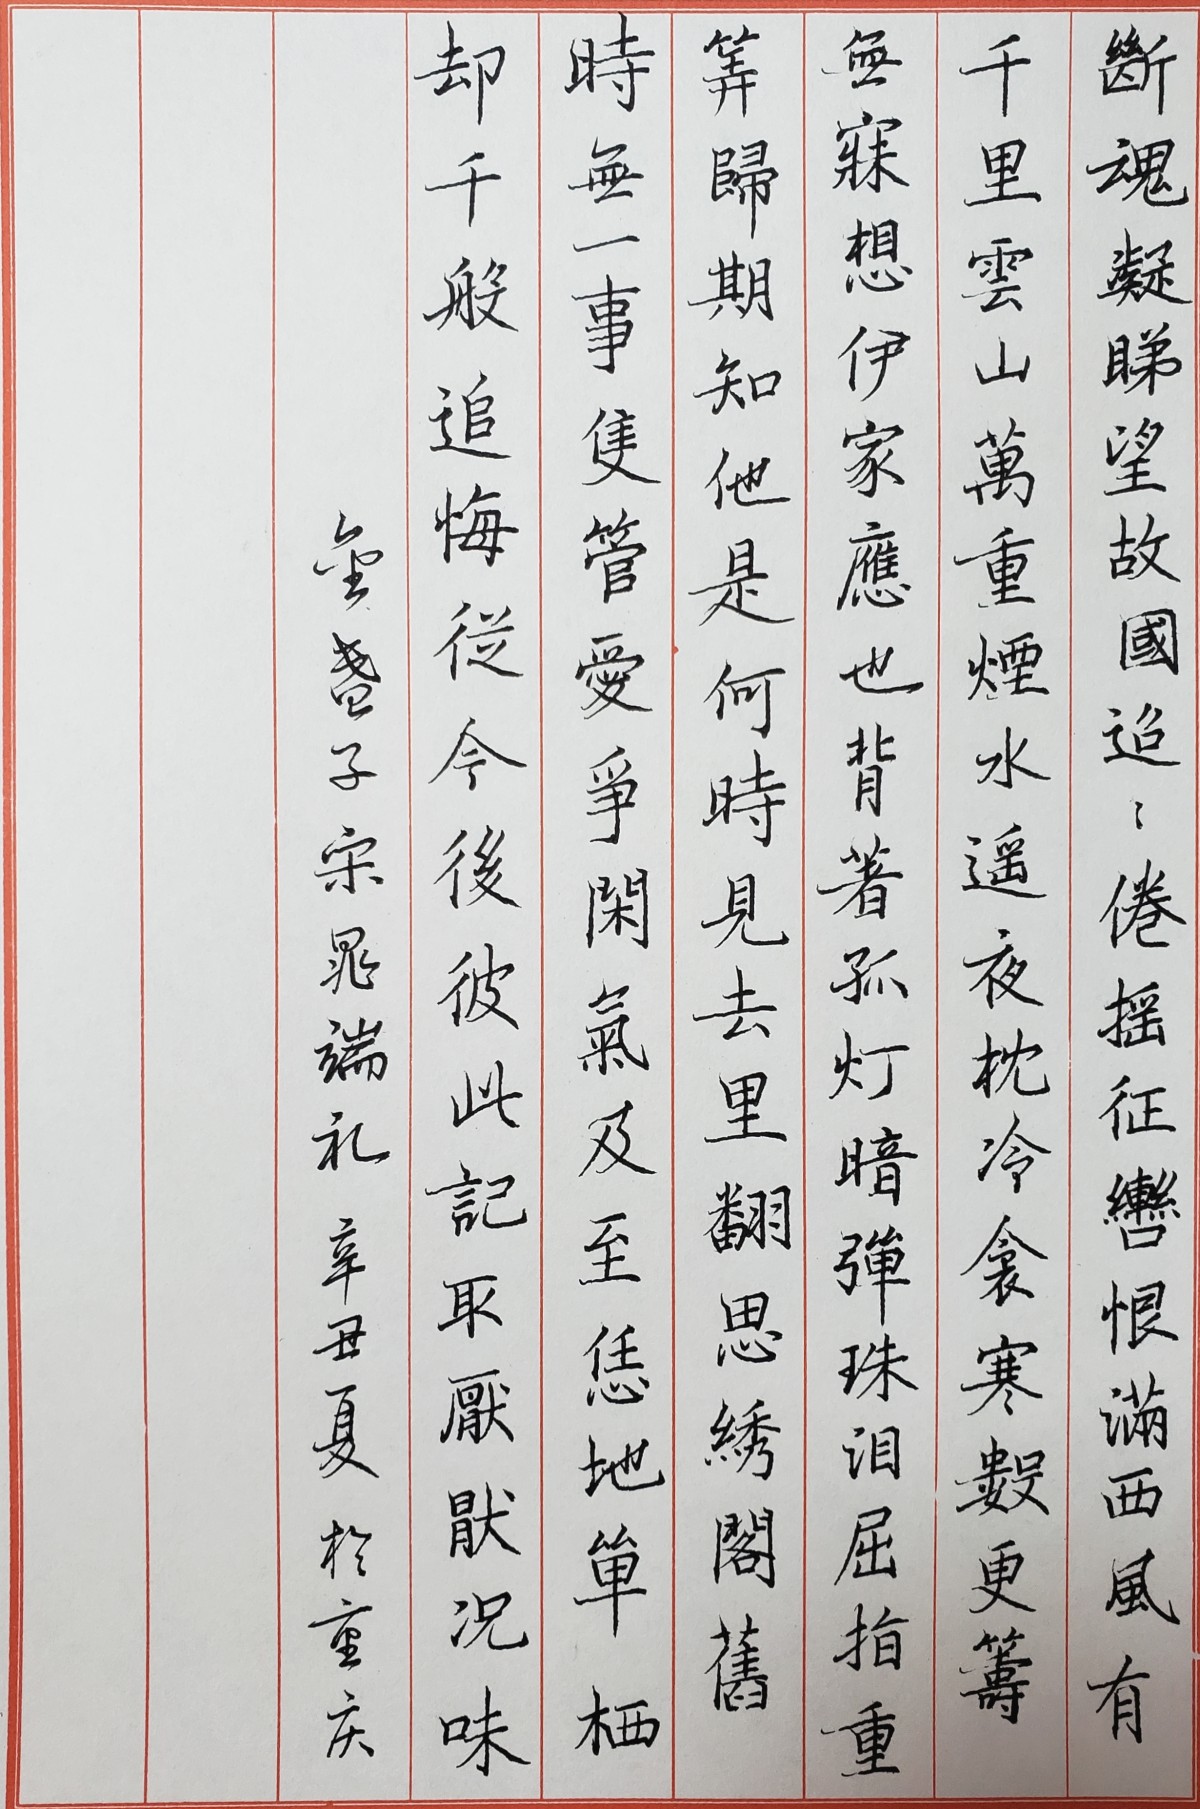 斷魂凝睇望故國迢〻倦摇征轡恨滿西風有
千里雲山萬重煙水遥夜枕冷衾寒數更籌
無寐想伊家應也背著孤灯暗彈珠泪屈指重
筭歸期知他是何時見去里翻思綉閣舊
時無一事隻管愛爭閑氣及至恁地單栖
却千般追悔從今後彼此記取厭厭况味
金盞子宋晁端礼 辛丑夏於重庆